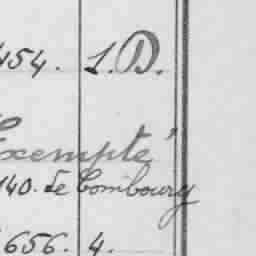 454. 1. D.
Exempte"
140. de Combourg
656. 4.